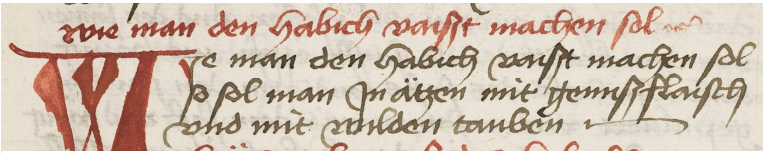 wie man den habich vaisst machen sol
Wie man den habich vaisst machen sol
so sol man In ätzen mit gemsflaisch
vnd mit wilden tauben